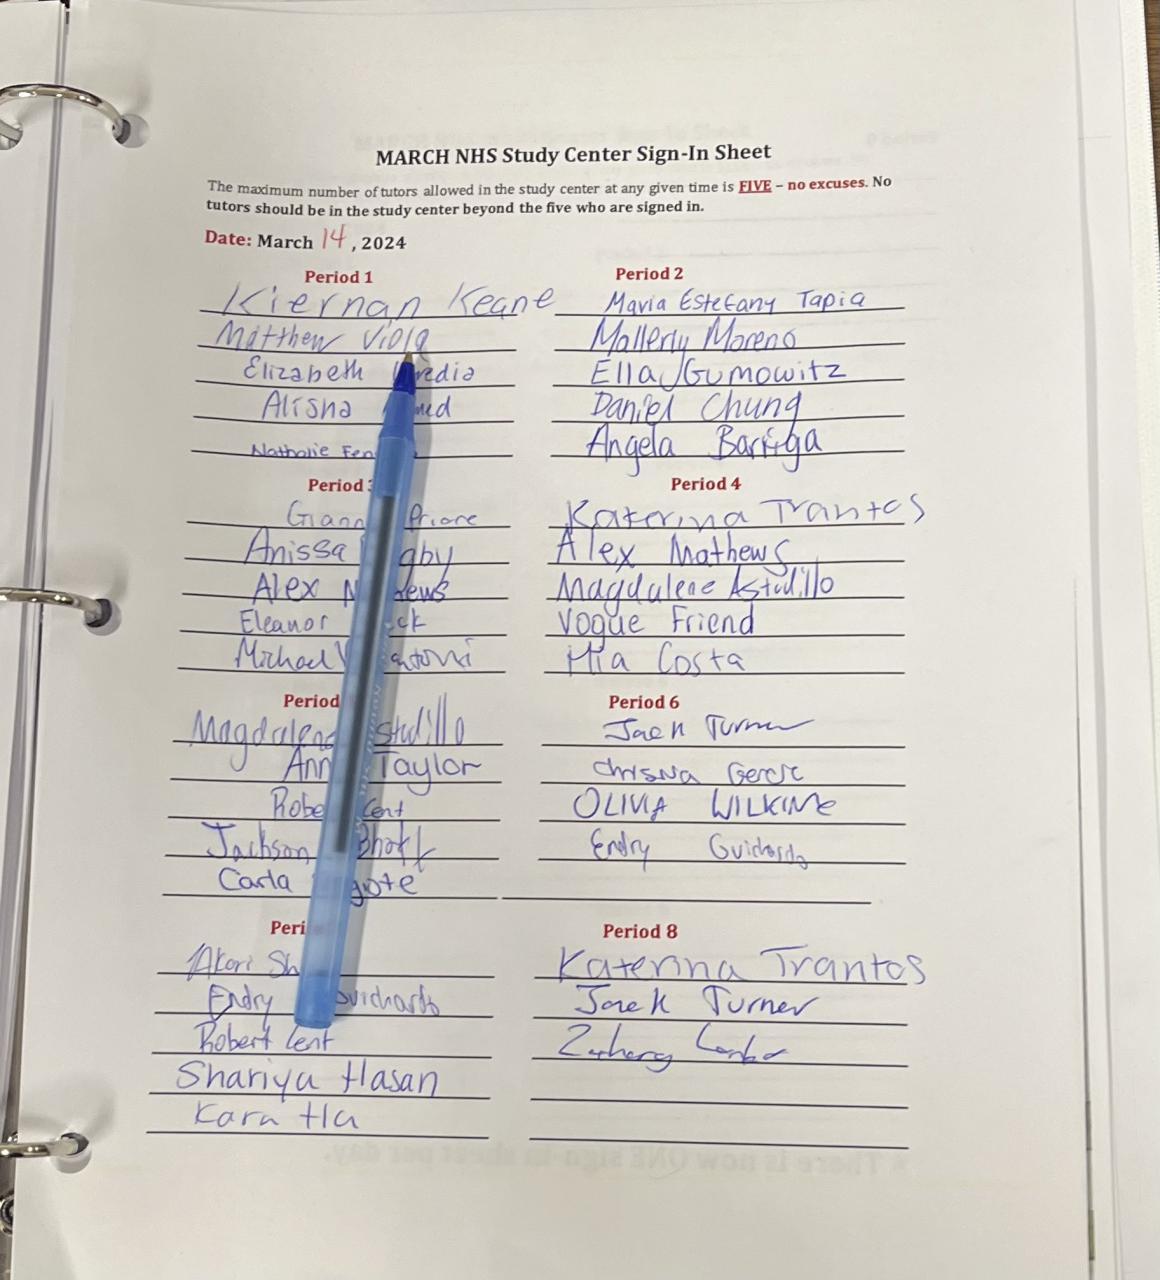 MARCH NHS Study Center Sign-In Sheet
The maximum number of tutors allowed in the study center at any given time is FIVE – no excuses. No
tutors should be in the study center beyond the five who are signed in.
Date: March 14, 2024
Period 1
Kiernan Keane
Matthew Viola
Elizabeth
Alisha
Nathalie
Period 2
Maria Estefany Tapia
Mallerly Moreno
Ella Gumowitz
Daniel Chung
Angela Barriga
Period
Priore
Anissa
Alex
Eleanor
Michael
Period 4
Katerina Trantos
Alex Mathews
Magdalene Astudillo
Vogue Friend
Mia Costa
Period
Taylor
Jackson
Carla
Period 6
Jack Turner
OLIVIA
Endry Guichardo
Endry Guichardo
Robert Lent
Shariya Hasan
Kara Hla
Period 8
Katerina Trantos
Jack Turner